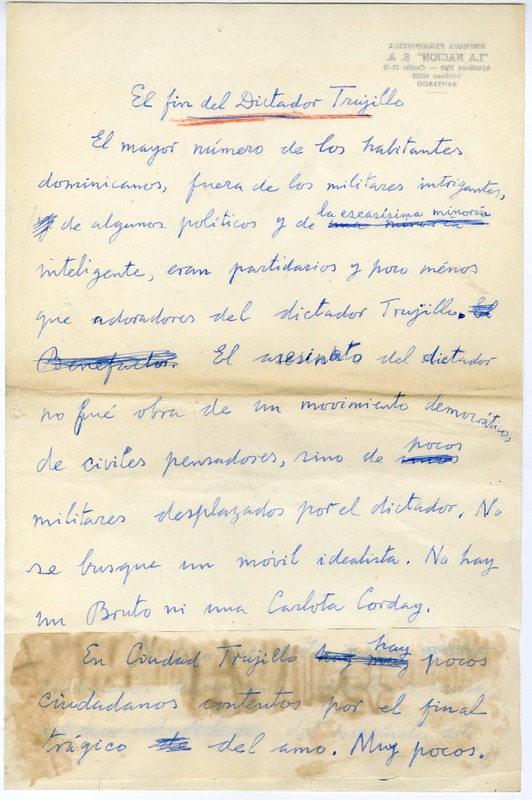 EMPRESA PERIODISTICA
"LA NACION" S. A.
SANTIAGO
El fin del Dictador Trujillo
El mayor número de los habitantes
dominicanos, fuera de los militares intrigantes,
de algunos políticos y de la escasísima minoría
inteligente, eran partidarios y poco ménos
que adoradores del dictador Trujillo. El
Benefactor. El asesinato del dictador
no fué obra de un movimiento democrático,
de civiles pensadores, sino de pocos
militares desplazados por el dictador. No
se busque un móvil idealista. No hay
un Bruto ni una Carlota Corday.
En Ciudad Trujillo hay pocos
ciudadanos contentos por el final
trágico del amo. Muy pocos.